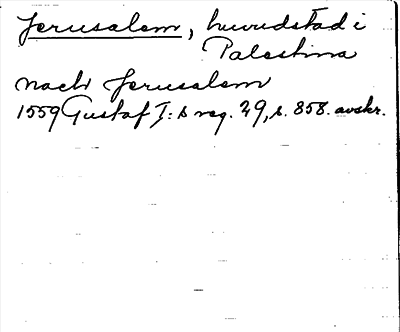 Jerusalem, huvudstad i
Palestina
nach Jerusalem
1559 Gustaf I:s reg. 29, s. 858. avskr.